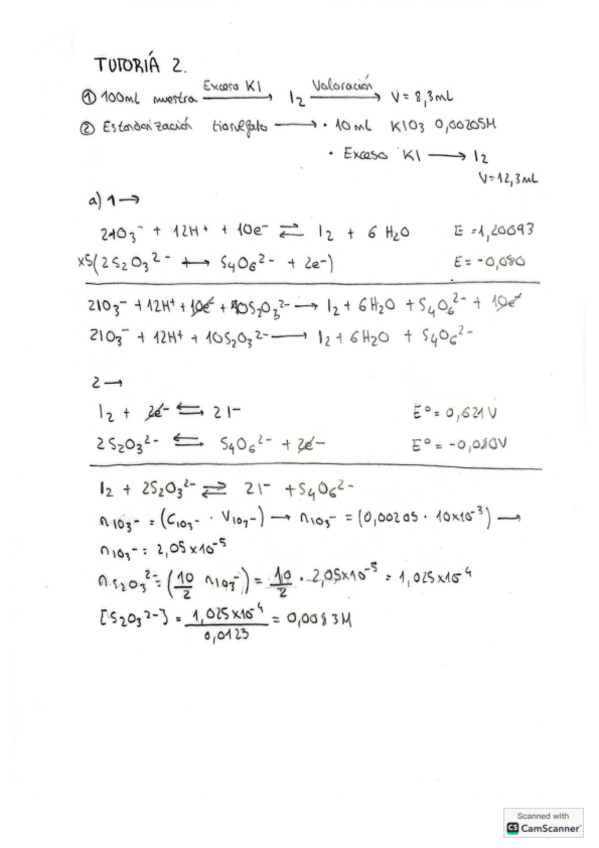 TUTORIÁ 2.
① 100ml muestra —Exceso KI→ I2 —Valoración→ V = 8,3mL
② Estandarización tiosulfato → · 10 ml KIO3 0,00205M
· Exceso KI → I2
V=12,3mL
a) 1→
2IO3⁻ + 12H⁺ + 10e⁻ ⇌ I2 + 6 H2O E = 1,20093
x5(2S2O3²⁻ ↔ S4O6²⁻ + 2e⁻) E = -0,080
2IO3⁻ + 12H⁺ + 10e⁻ + 10S2O3²⁻ → I2 + 6H2O + S4O6²⁻ + 10e⁻
2IO3⁻ + 12H⁺ + 10S2O3²⁻ → I2 + 6H2O + S4O6²⁻
2→
I2 + 2e⁻ ⇌ 2I⁻ E° = 0,621V
2S2O3²⁻ ⇌ S4O6²⁻ + 2e⁻ E° = -0,080V
I2 + 2S2O3²⁻ ⇌ 2I⁻ + S4O6²⁻
nIO3⁻ = (CIO3⁻ · VIO3⁻) → nIO3⁻ = (0,00205 · 10x10⁻³) →
nIO3⁻ = 2,05x10⁻⁵
nS2O3²⁻ = (10/2 nIO3⁻) = 10/2 · 2,05x10⁻⁵ = 1,025x10⁻⁴
[S2O3²⁻] = 1,025x10⁻⁴/0,0123 = 0,0083M
Scanned with
CS CamScanner